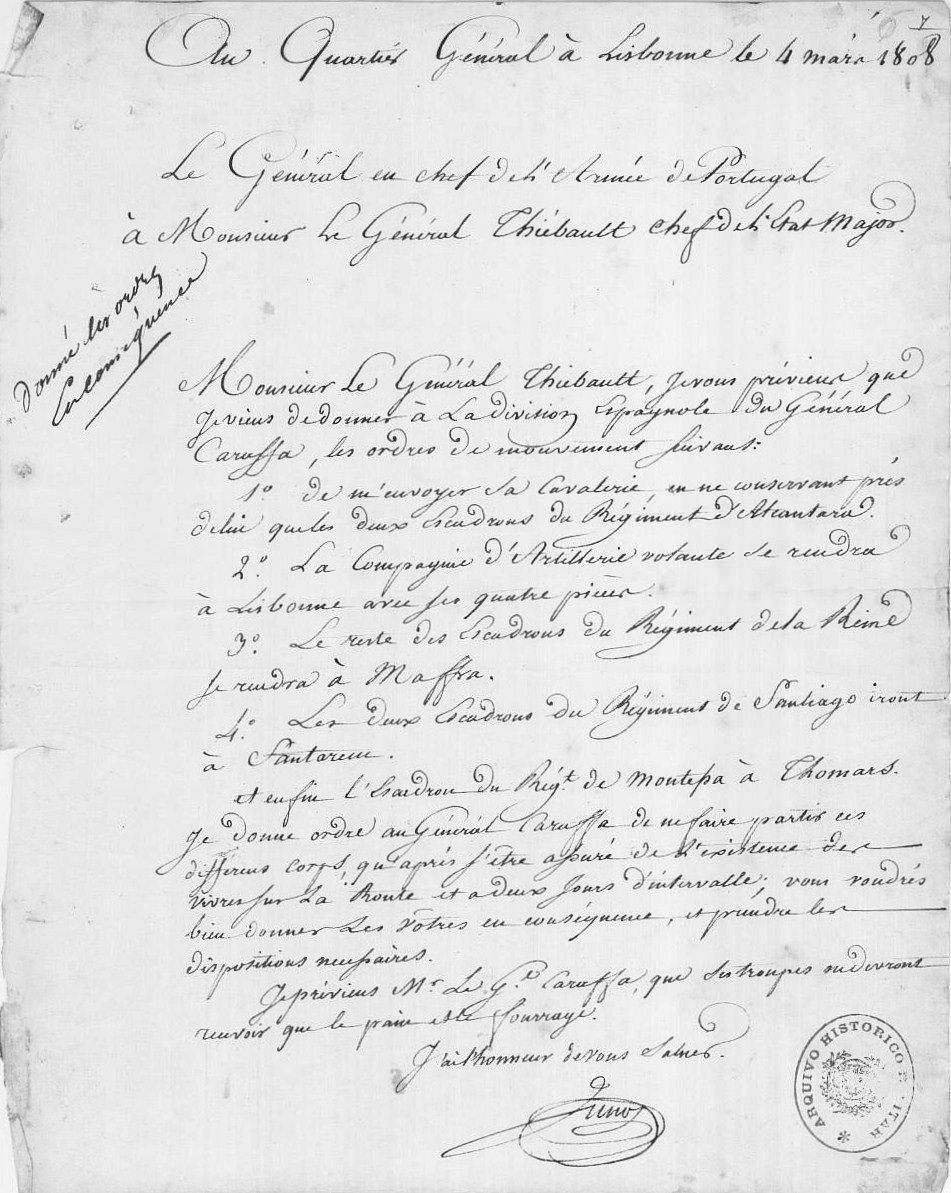 7
Au Quartier Général à Lisbonne le 4 mars 1808
Le Général en chef de l'Armée de Portugal
à Monsieur Le Général Thiébault chef de l'Etat Major.
donné les ordres
en conséquence
Monsieur Le Général Thiébault, Je vous préviens que
Je viens de donner à La division Espagnole du Général
Caraffa, les ordres de mouvement suivans:
1.º de m'envoyer sa Cavalerie, en ne conservant près
de lui que les deux Escadrons du Régiment d'Alcantara.
2.º La Compagnie d'Artillerie volante se rendra
à Lisbonne avec ses quatre pièces.
3.º Le reste des Escadrons du Régiment de la Reine
se rendra à Maffra.
4.º Les deux Escadrons du Régiment de Santiago iront
à Santarem.
et enfin l'Escadron du Rég.t de Montesa à Thomars.
Je donne ordre au Général Caraffa de ne faire partir ces
differens corps, qu'après s'être assuré de l'existence des
vivres sur La Route et a deux Jours d'intervalle; vous voudrés
bien donner Les vôtres en conséquence, et prendre les
dispositions necessaires.
Je préviens Mr. Le G.al Caraffa, que ses troupes ne devront
recevoir que le pain et le fourrage.
J'ai l'honneur de vous Saluer.
Junot
ARQUIVO HISTORICO MILITAR